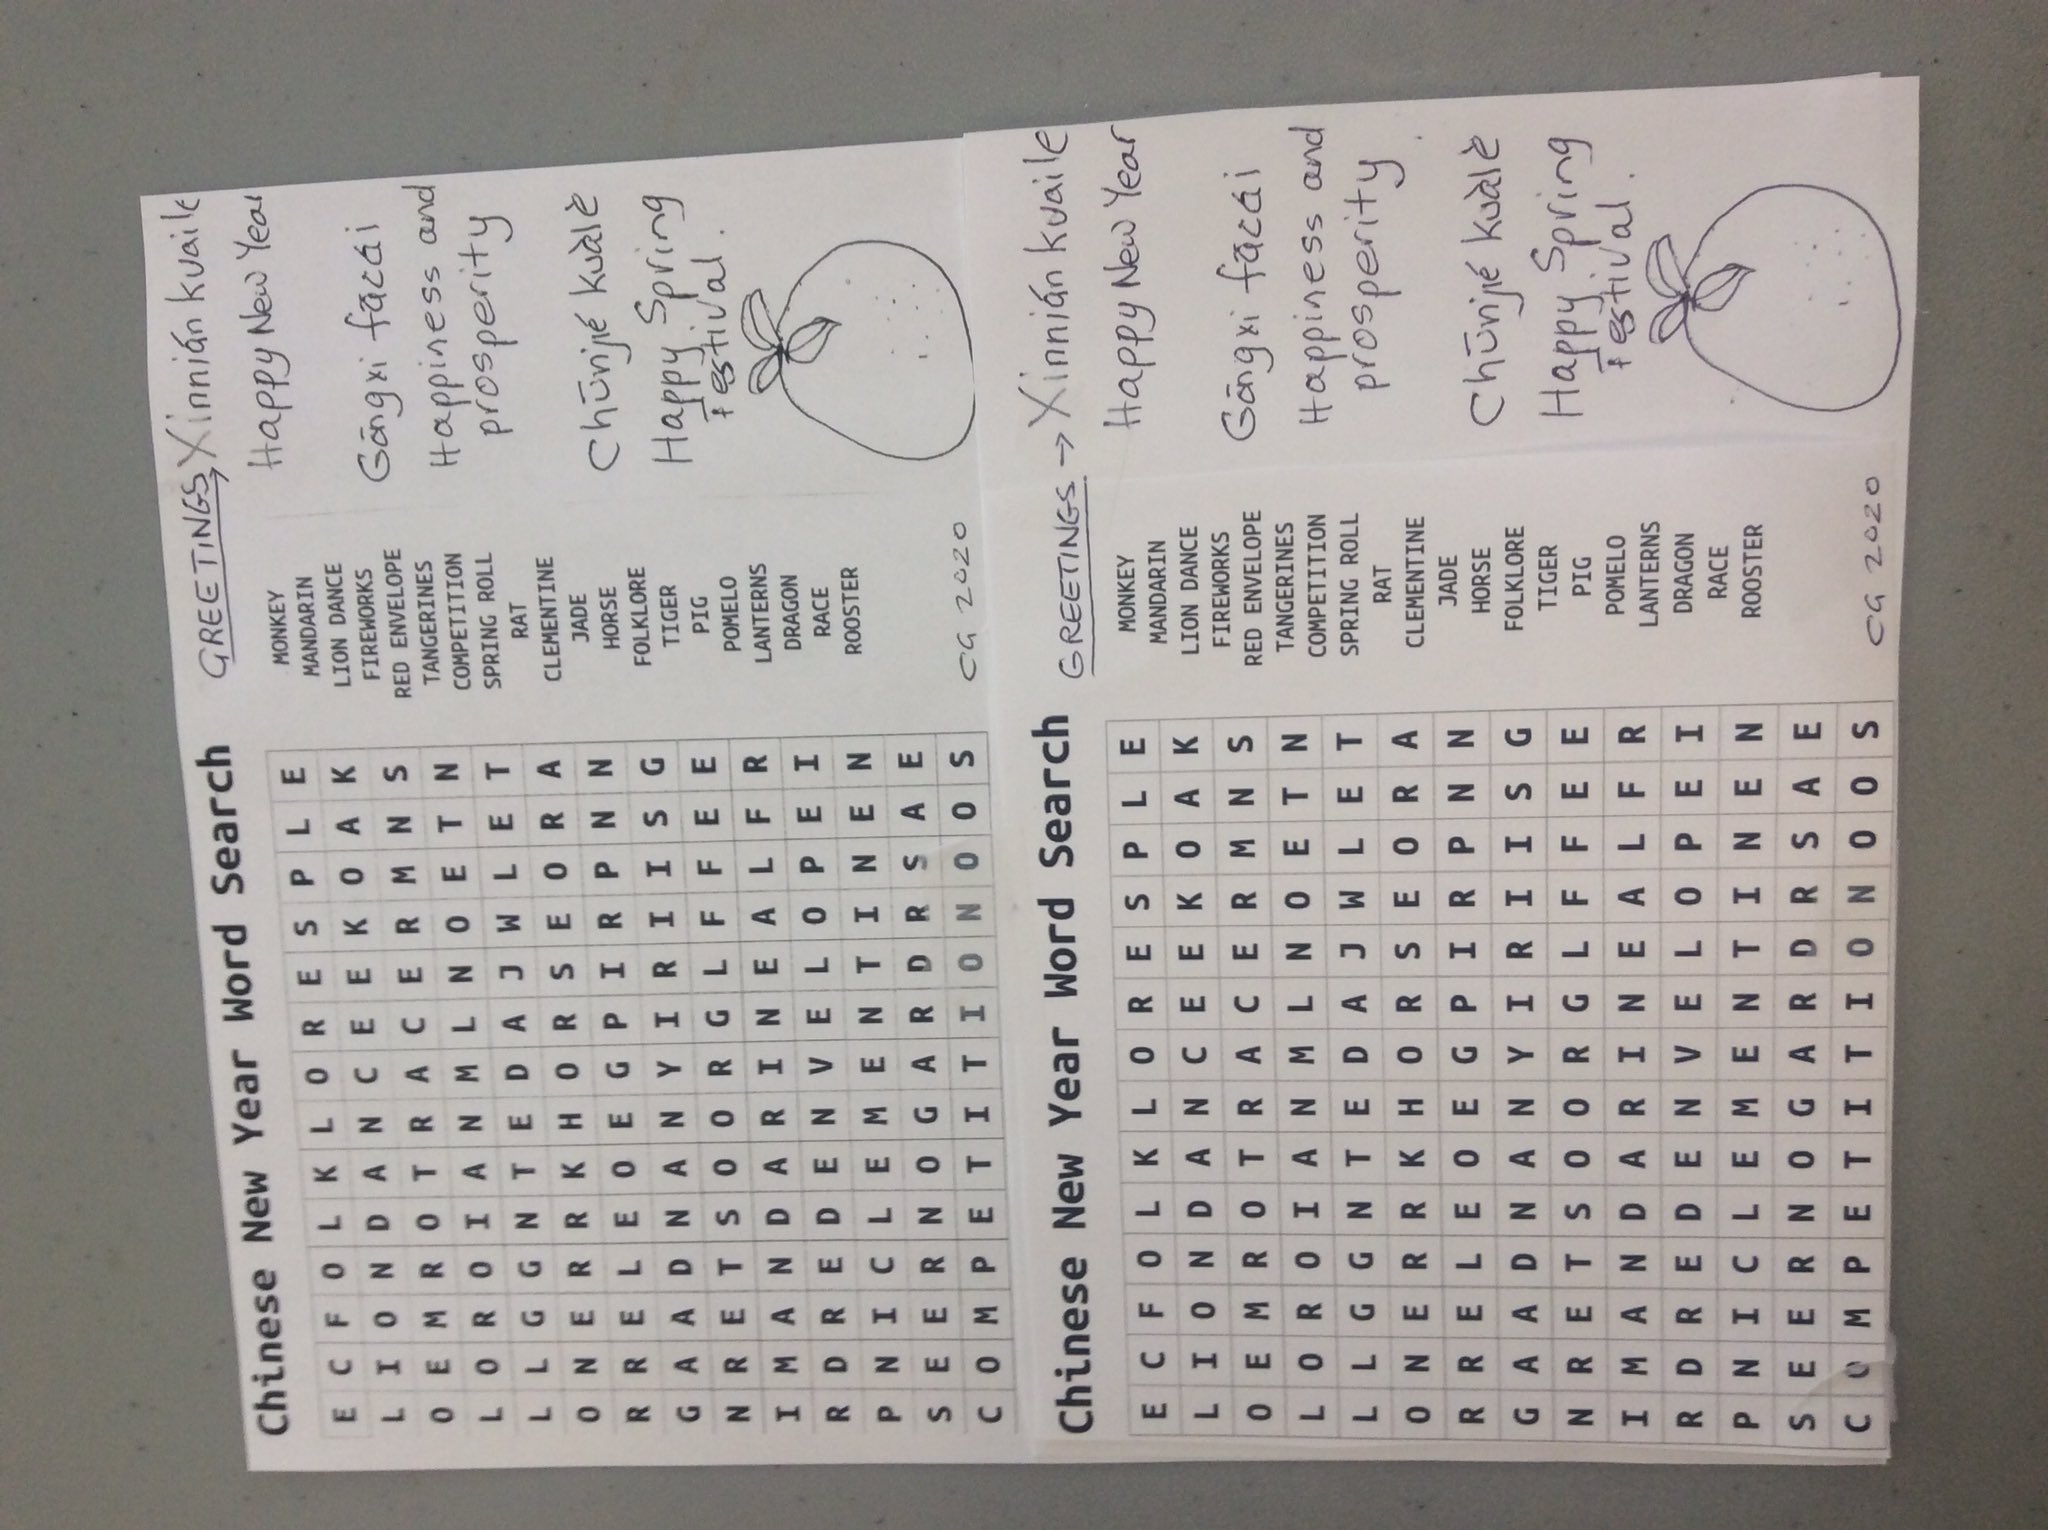 Chinese New Year Word Search
E C F O L K L O R E S P L E
L I O N D A N C E E K O A K
O E M R O T R A C E R M N S
L O R O I A N M L N O E T N
L L G G N T E D A J W L E T
O N E R R K H O R S E O R A
R R E L E O E G P I R P N N
G A A D N A N Y I R I I S G
N R E T S O O R G L F F E E
I M A N D A R I N E A L F R
R D R E D E N V E L O P E I
P N I C L E M E N T I N E N
S E E R N O G A R D R S A E
C O M P E T I T I O N O O S
MONKEY
MANDARIN
LION DANCE
FIREWORKS
RED ENVELOPE
TANGERINES
COMPETITION
SPRING ROLL
RAT
CLEMENTINE
JADE
HORSE
FOLKLORE
TIGER
PIG
POMELO
LANTERNS
DRAGON
RACE
ROOSTER
CG 2020
GREETINGS → Xinnián kuaile
Happy New Year
Gōngxi fācái
Happiness and
prosperity
Chūnjié kuàlè
Happy Spring
festival.
Chinese New Year Word Search
E C F O L K L O R E S P L E
L I O N D A N C E E K O A K
O E M R O T R A C E R M N S
L O R O I A N M L N O E T N
L L G G N T E D A J W L E T
O N E R R K H O R S E O R A
R R E L E O E G P I R P N N
G A A D N A N Y I R I I S G
N R E T S O O R G L F F E E
I M A N D A R I N E A L F R
R D R E D E N V E L O P E I
P N I C L E M E N T I N E N
S E E R N O G A R D R S A E
C O M P E T I T I O N O O S
MONKEY
MANDARIN
LION DANCE
FIREWORKS
RED ENVELOPE
TANGERINES
COMPETITION
SPRING ROLL
RAT
CLEMENTINE
JADE
HORSE
FOLKLORE
TIGER
PIG
POMELO
LANTERNS
DRAGON
RACE
ROOSTER
CG 2020
GREETINGS → Xinnián kuaile
Happy New Year
Gōngxi fācái
Happiness and
prosperity.
Chūnjié kuàlè
Happy Spring
festival.